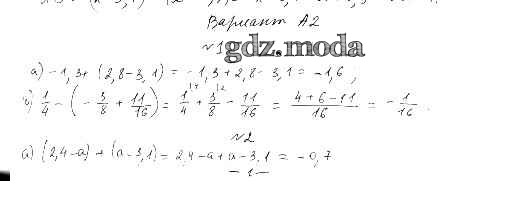 Вариант А2
№1
gdz.moda
а) -1,3+ (2,8-3,1) = -1,3+2,8-3,1 = -1,6,
б) 1/4 - (-3/8 + 11/16) = 1/4 + 3/8 - 11/16 = (4+6-11)/16 = -1/16.
№2
а) (2,4-а) + (а-3,1) = 2,4-а+а-3,1 = -0,7